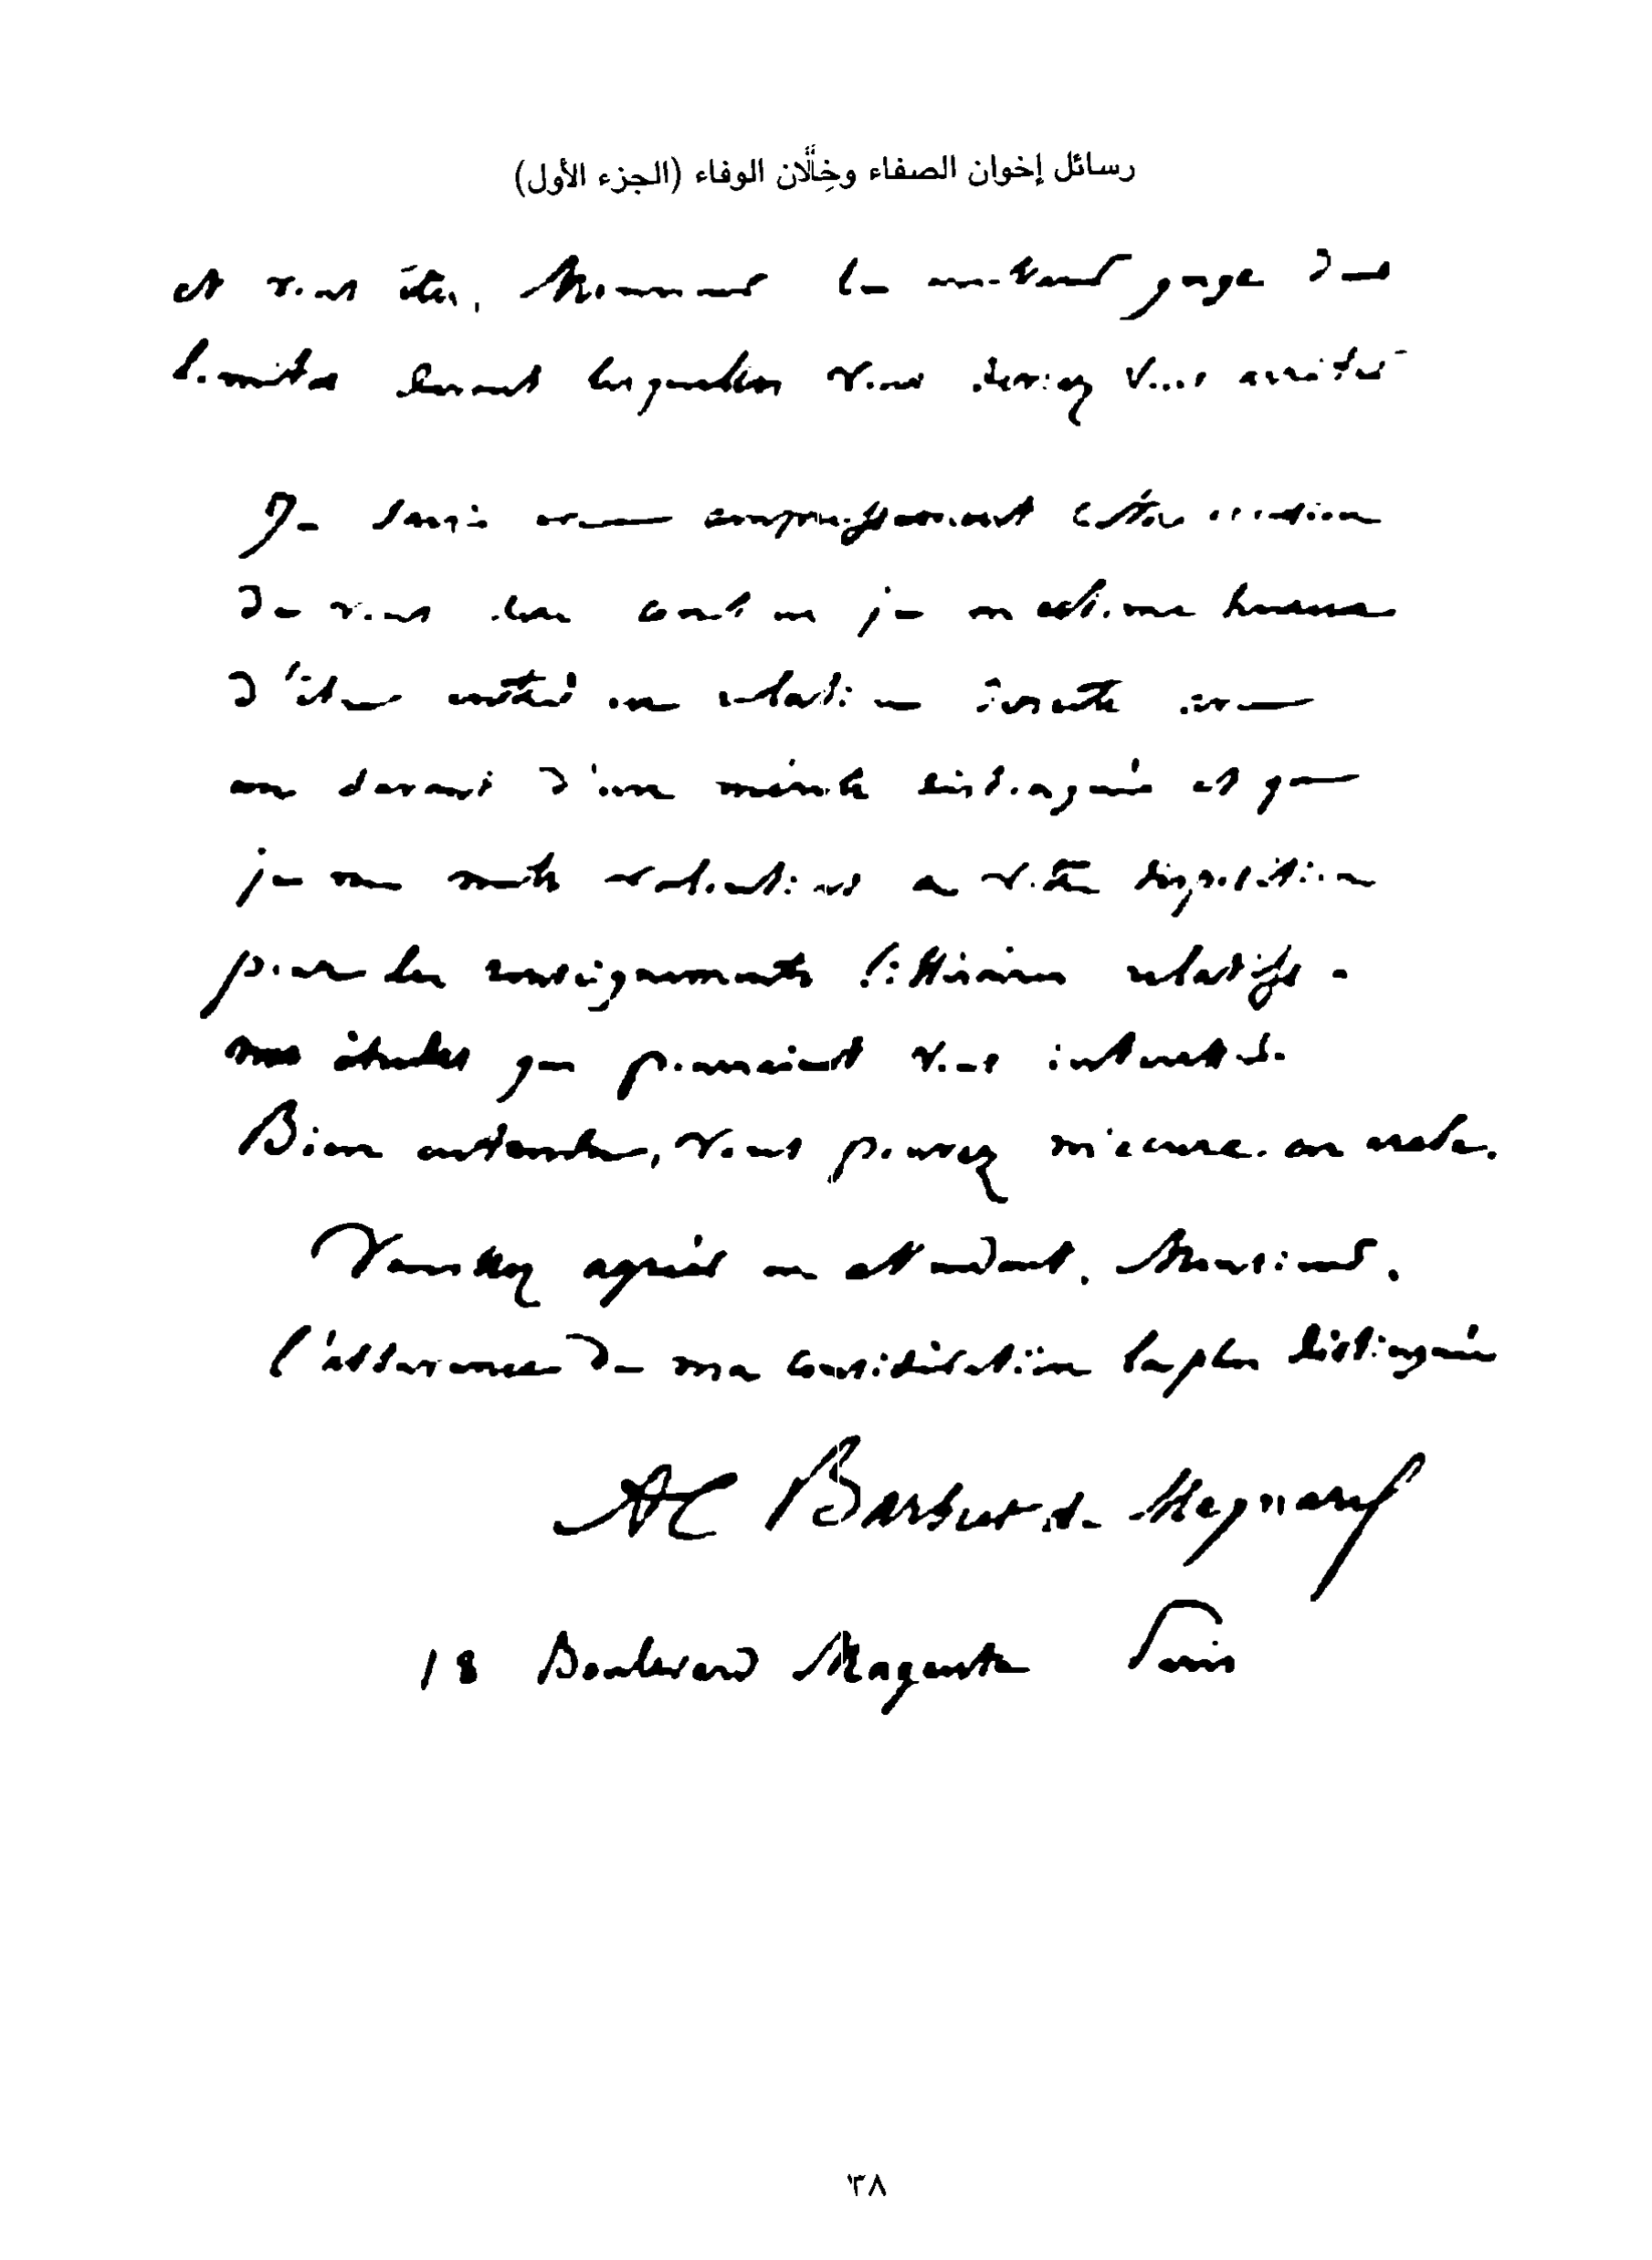 رسائل إخوان الصفاء وخِلَّان الوفاء (الجزء الأول)
et vous êtes, Monsieur le meilleur juge des
limites devant lesquelles vous devriez vous arrêter
Je saisis avec empressement cette occasion
de vous dire combien je m'estime heureux
d'être entré en relation directe avec
un savant d'un mérite distingué et que
je me mets volontiers a votre disposition
pour les renseignements littéraires relatifs a
mes études qui pourraient vous intéresser.
Bien entendu, vous pouvez m'écrire en arabe.
Veuillez agréer en attendant, Monsieur,
l'assurance de ma considération la plus distinguée
AC Barbier de Meynard
18 Boulevard Magenta Paris
٣٨